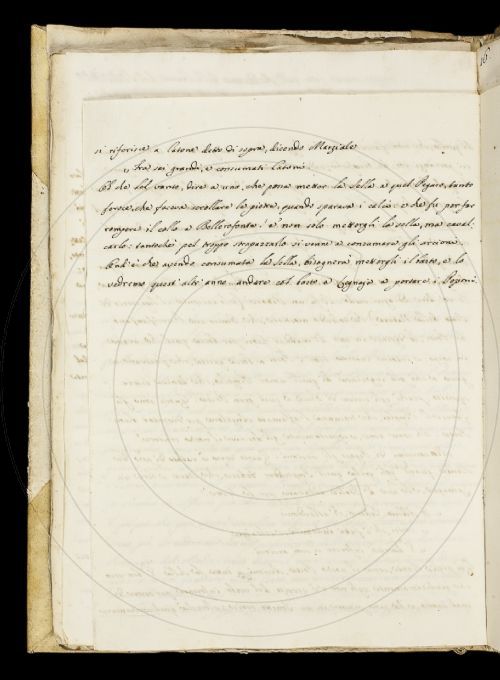 si riferisce a Catone detto di sopra, dicendo Marziale
Tra sei grandi, e consumati Catoni
E dà del vanto, dire a uno, che possa metter la sella a quel Pegaso, tanto
feroce, che faceva scrollare la pietre, quando sparava i calci: e che fu per far
rompere il collo a Bellerofonte: e non solo mettergli la sella, ma caval-
carlo: tantochè pel troppo strapazzarlo si viene a consumare gli arcioni.
Ond'è che avendo consumata la sella, bisognerà mettergli il basto, e lo
vedremo quest'altr'anno andare col basto a Legnaja a portare i Poponi
16